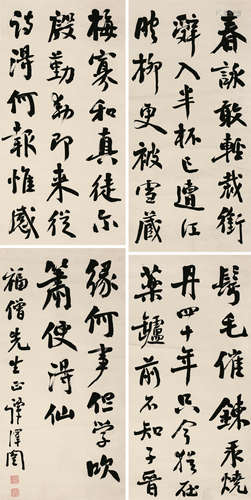 春詠敢輕裁銜
辭入半杯已遭江
映柳更被雪藏
梅寡和真徒尔
殷勤動即来從
詩得何報惟感
鬢毛催鍊汞燒
丹四十年只今猶在
藥鑪前不知子晉
緣何事但学吹
簫便得仙
福僧先生正 譚澤闓